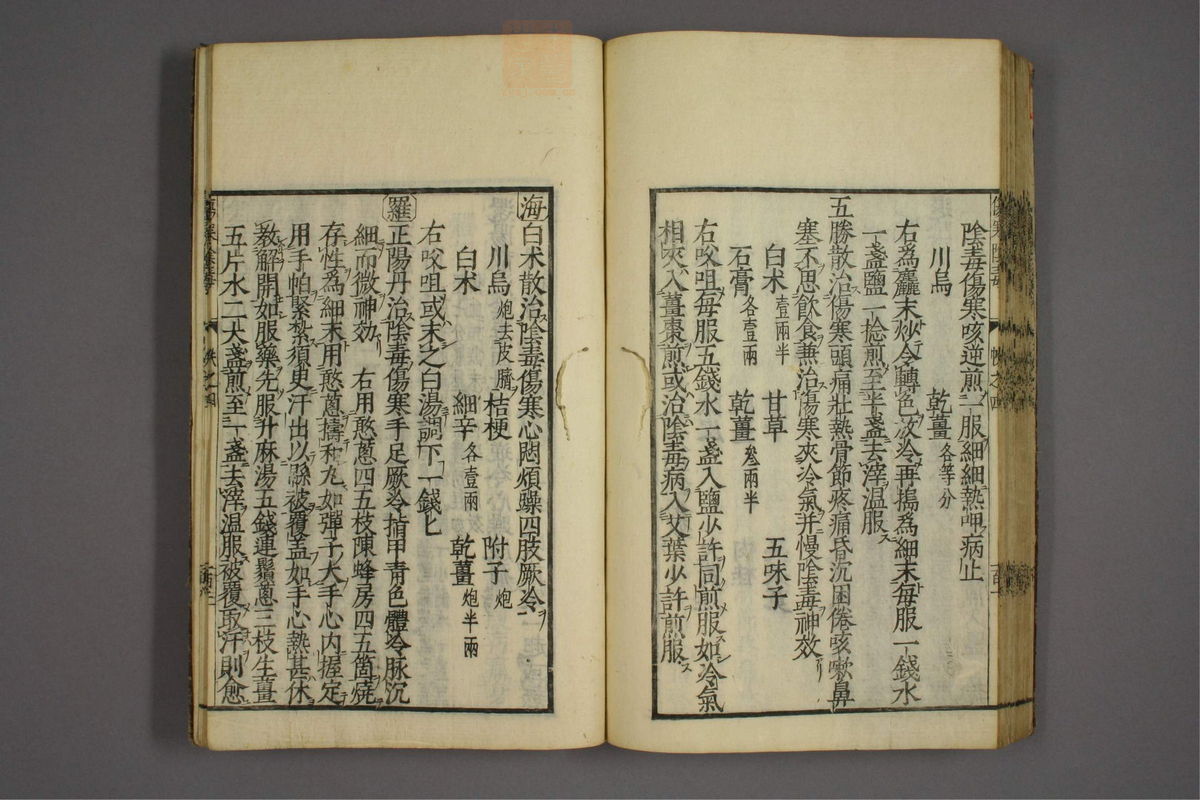 陰毒傷寒咳逆煎一服細細熱呷病止
川烏 乾薑各等分
右為麤末炒令轉色放冷再搗為細末每服一錢水
一盞鹽一捻煎至半盞去滓溫服
五勝散治傷寒頭痛壯熱骨節疼痛昏沉困倦咳嗽鼻
塞不思飲食兼治傷寒夾冷氣并慢陰毒神效
白朮壹兩半 甘草 五味子
石膏各壹兩 乾薑叁兩半
右㕮咀每服五錢水一盞入鹽少許同煎服如冷氣
相夾入薑棗煎或治陰毒病入艾葉少許煎服
海白朮散治陰毒傷寒心悶煩躁四肢厥冷
川烏炮去皮臍 桔梗 附子炮
白朮 細辛各壹兩 乾薑炮半兩
右㕮咀或末之白湯調下一錢匕
羅正陽丹治陰毒傷寒手足厥冷指甲青色體冷脉沉
細而微神効 右用憨蔥四五枝陳蜂房四五箇燒
存性為細末用憨蔥擣和丸如彈子大手心內握定
用手帕緊紮須臾汗出以緜被覆盖如手心熱甚休
教解開如服藥先服升麻湯五錢連鬚蔥三枝生薑
五片水二大盞煎至一盞去滓溫服被覆取汗則愈